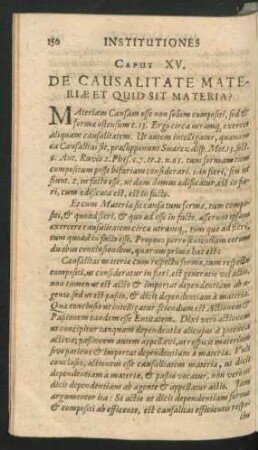 150 INSTITUTIONES
CAPUT XV.
DE CAUSALITATE MATE-
RIÆ ET QUID SIT MATERIA?
MAteriam Causam esse non solùm compositi, sed &
forma ostensum c. 13. Ergo circa utramq; exercet
aliquam causalitatem. Ut autem intelligatur, quænam
ea Causalitas sit, præsupponunt Suarez. disp. Met. 13. sect.
9. Ant. Ruvio 2. Phys. c. 7. tr. 2. n. 65. tum formam tum
compositum posse bifariam considerari. 1. in fieri, seu ut
fiunt. 2. in facto esse, ut dem domus ædificatur, est in fie-
ri, cum ædificata est, est in facto.
Et cum Materia sit causa tum formæ, tum compo-
siti, & quoad fieri, & quo ad esse in facto, asserunt ipsam
exercere causalitatem circa utrumq; tum quo ad fieri,
tum quoad in facto esse. Propono porro sententiam veram
duabus conclusionibus, quarum prima hæc est.
Causalitas materiæ cum respectu formæ, tum respectu
compositi, ut considerantur in fieri, est generatio vel actio,
non tamen ut est actio & importat dependentiam ab a-
gente sed ut est passio, & dicit dependentiam à materia.
Quæ conclusio ut intelligatur sciendum est, Actionem &
Passionem eandem esse Entitatem. Dixi verò actionem
ut concipitur tanquam dependentia alicujus à potentia
activa, passionem autem appellavi, ut respicit materiam
sive patiens & importat dependentiam à materia. Vult
conclusio, actionem esse causalitatem materia, ut dicit
dependentiam à materia, & passio vocatur, non verò ut
dicit dependentiam ab agente & appellatur actio. Jam
argumentor ita: Si actio ut dicit dependentiam formæ
& compositi ab efficiente, est causalitas efficientis respe-